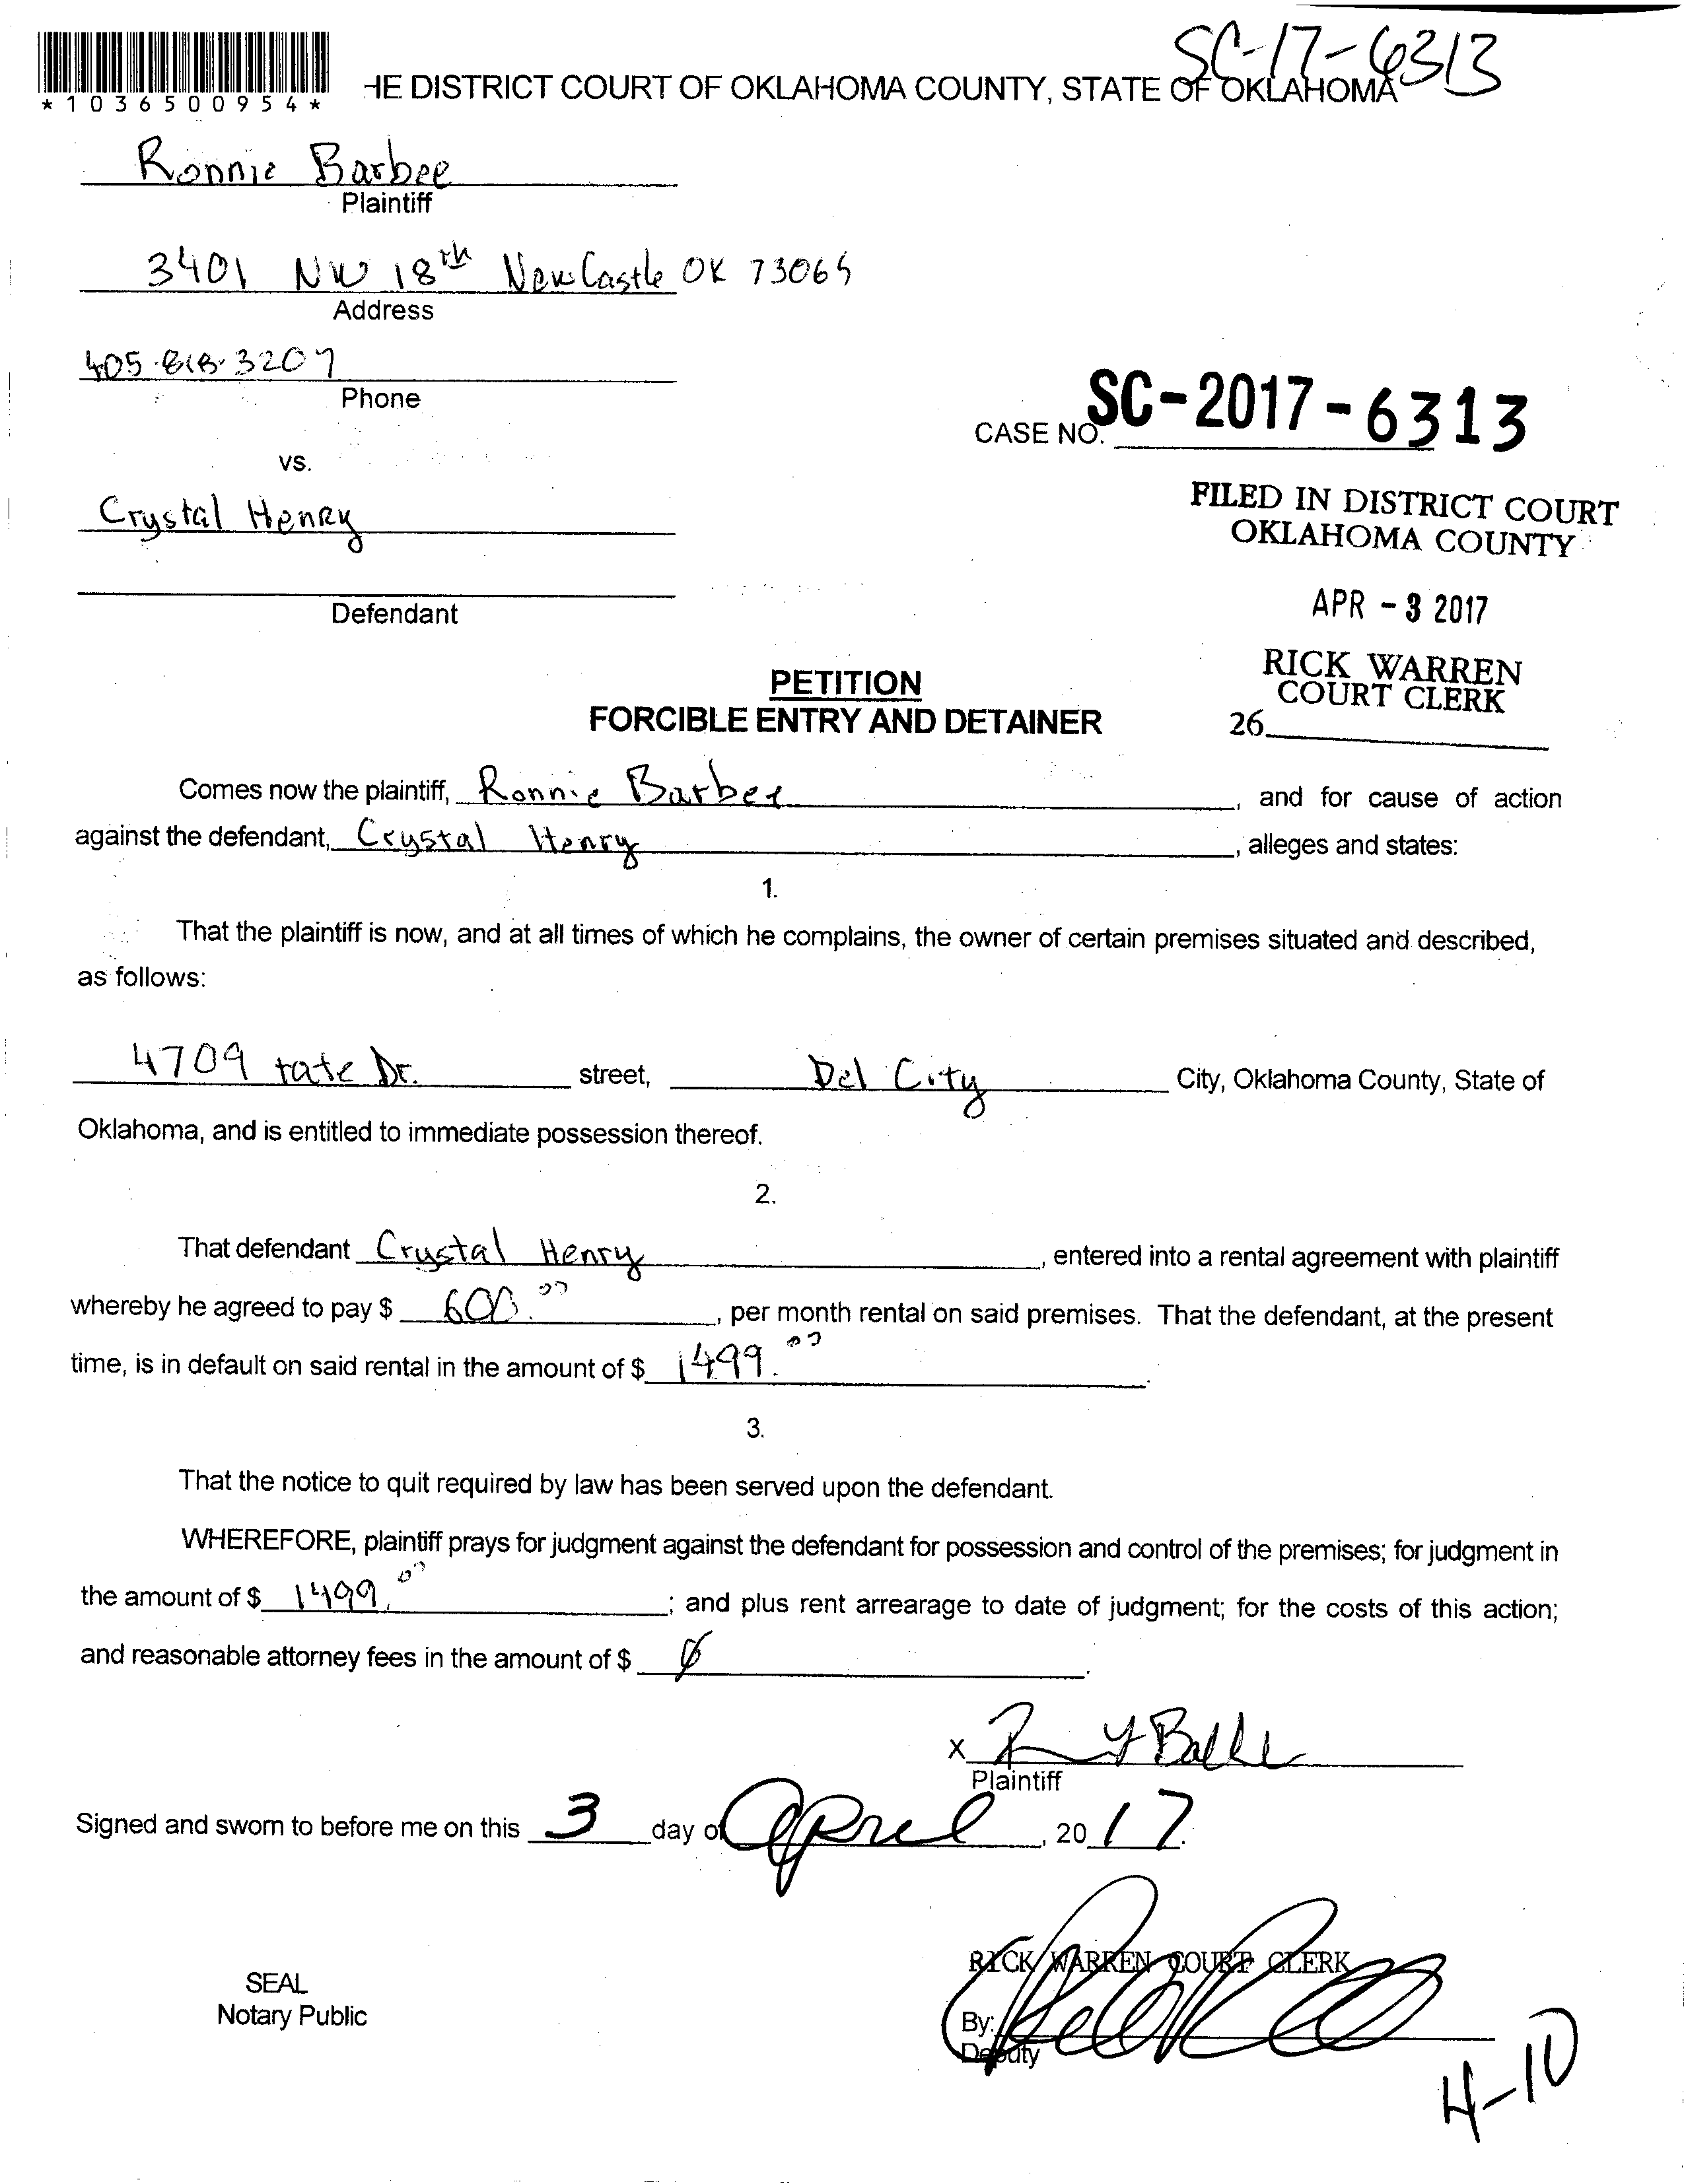 SC-17-6313
*1036500954*
HE DISTRICT COURT OF OKLAHOMA COUNTY, STATE OF OKLAHOMA
Ronnie Barbee
Plaintiff
3401 NW 18th NewCastle OK 73065
Address
405-818-3207
Phone
CASE NO. SC-2017-6313
vs.
FILED IN DISTRICT COURT
OKLAHOMA COUNTY
Crystal Henry
Defendant
APR - 3 2017
RICK WARREN
COURT CLERK
26
PETITION
FORCIBLE ENTRY AND DETAINER
Comes now the plaintiff, Ronnie Barbee, and for cause of action
against the defendant, Crystal Henry, alleges and states:
1.
That the plaintiff is now, and at all times of which he complains, the owner of certain premises situated and described,
as follows:
4709 tate Dr. street, Del City City, Oklahoma County, State of
Oklahoma, and is entitled to immediate possession thereof.
2.
That defendant Crystal Henry, entered into a rental agreement with plaintiff
whereby he agreed to pay $ 600.00, per month rental on said premises. That the defendant, at the present
time, is in default on said rental in the amount of $ 1499.00.
3.
That the notice to quit required by law has been served upon the defendant.
WHEREFORE, plaintiff prays for judgment against the defendant for possession and control of the premises; for judgment in
the amount of $ 1499.00; and plus rent arrearage to date of judgment; for the costs of this action;
and reasonable attorney fees in the amount of $ 0.
X
Plaintiff
Signed and sworn to before me on this 3 day of April, 2017.
RICK WARREN COURT CLERK
SEAL
Notary Public
By:
Deputy
4-10